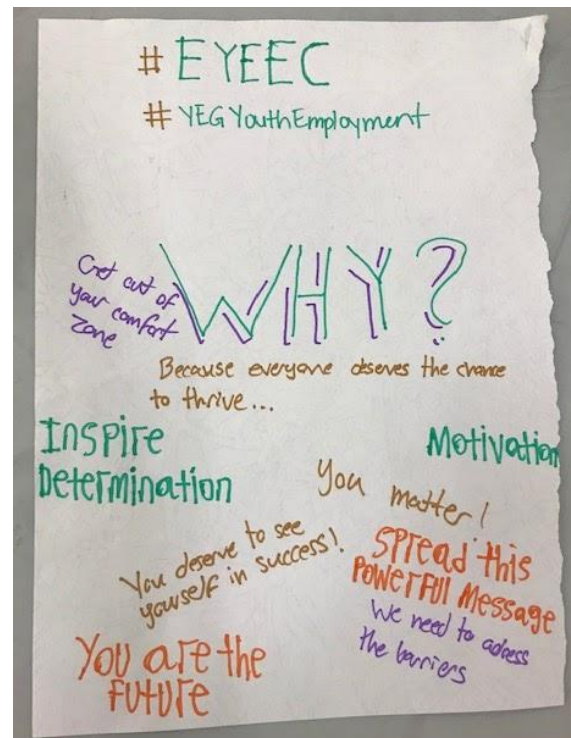 # EYEEC
# YEGYouthEmployment
WHY?
Get out of
your comfort
zone
Because everyone deserves the chance
to thrive...
Inspire
Determination
Motivation
You matter!
You deserve to see
yourself in success!
Spread this
Powerful Message
We need to adress
the barriers
You are the
future